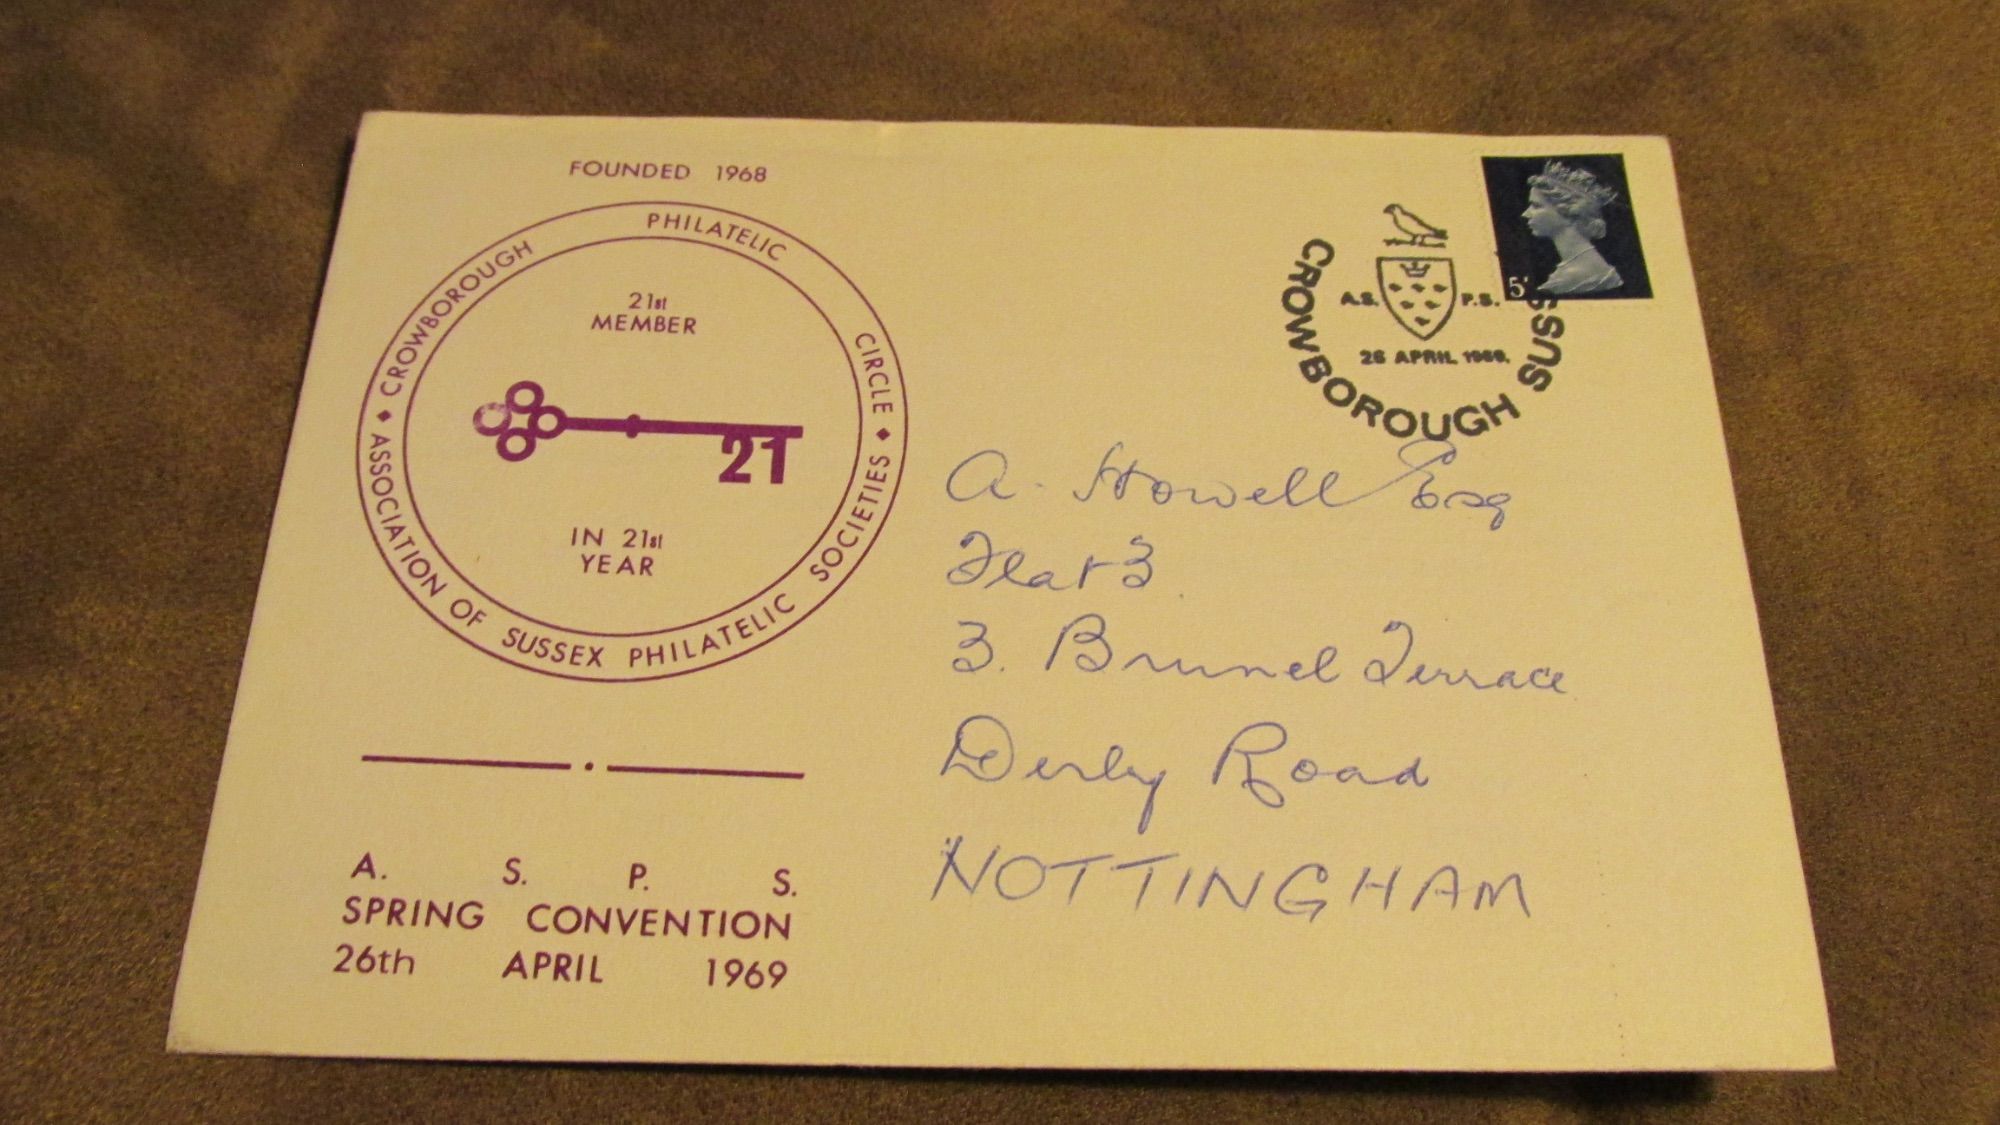 FOUNDED 1968
CROWBOROUGH PHILATELIC CIRCLE
ASSOCIATION OF SUSSEX PHILATELIC SOCIETIES
21st
MEMBER
21
IN 21st
YEAR
A. S. P. S.
SPRING CONVENTION
26th APRIL 1969
5d
A.S. P.S.
26 APRIL 1969.
CROWBOROUGH
A. Howell Esq
Flat 3
3. Brunel Terrace
Derby Road
NOTTINGHAM